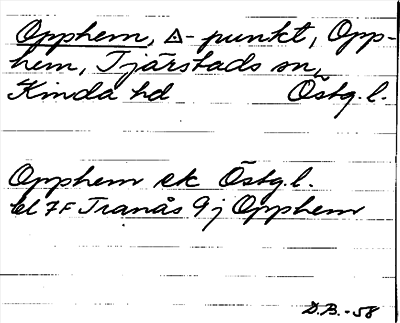 Opphem, △-punkt, Opp-
hem, Tjärstads sn,
Kinda hd Östg. l.
Opphem ek Östg. l.
bl 7F Tranås 9j Opphem
D.B. -58